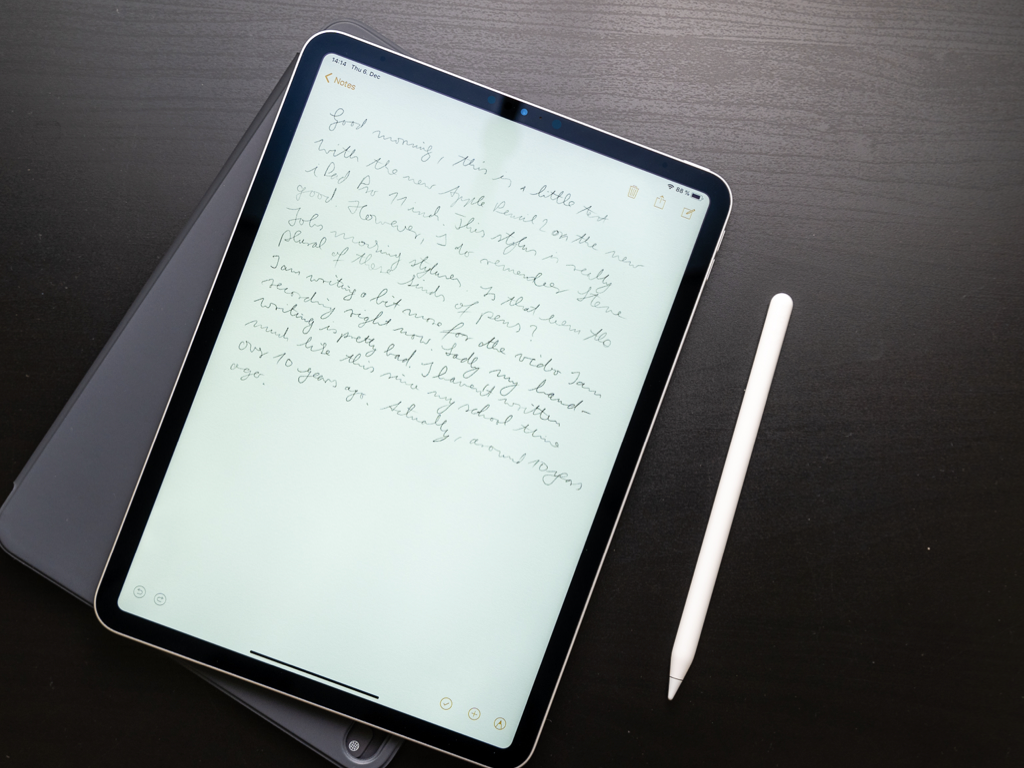 14:14 Thu 6. Dec
88 %
Notes
Good morning, this is a little test
with the new Apple Pencil 2 on the new
iPad Pro 11 inch. This stylus is really
good. However, I do remember Steve
Jobs mocking styluses. Is that even the
plural of these kinds of pens?
I am writing a bit more for the video I am
recording right now. Sadly my hand-
writing is pretty bad. I haven't written
much like this since my school time
over 10 years ago. Actually, around 10 years
ago.